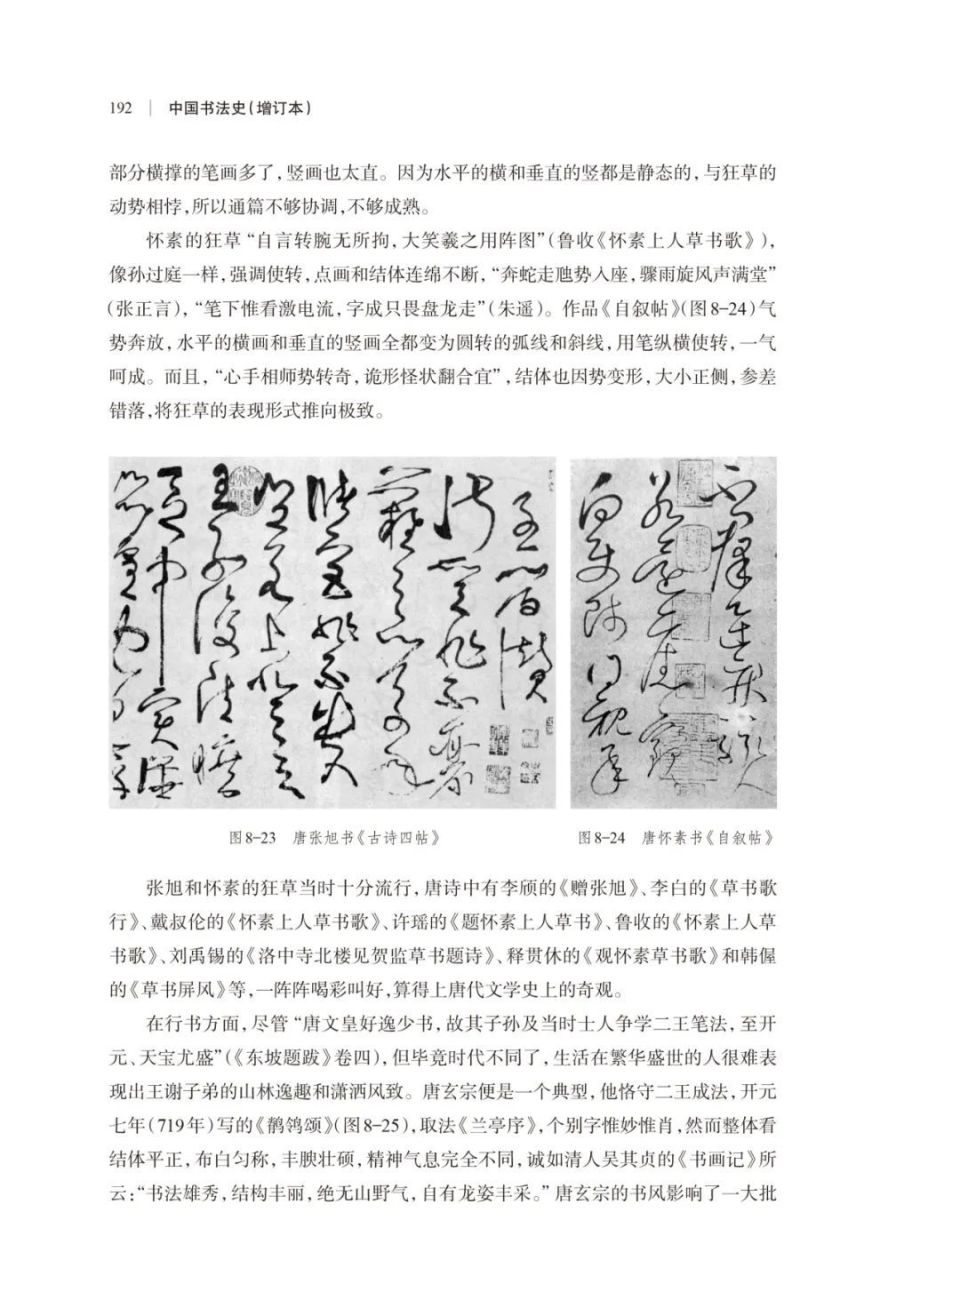 192 | 中国书法史(增订本)
部分横撑的笔画多了,竖画也太直。因为水平的横和垂直的竖都是静态的,与狂草的
动势相悖,所以通篇不够协调,不够成熟。
怀素的狂草“自言转腕无所拘,大笑羲之用阵图”(鲁收《怀素上人草书歌》),
像孙过庭一样,强调使转,点画和结体连绵不断,“奔蛇走虺势入座,骤雨旋风声满堂”
(张正言),“笔下惟看激电流,字成只畏盘龙走”(朱遥)。作品《自叙帖》(图8-24)气
势奔放,水平的横画和垂直的竖画全都变为圆转的弧线和斜线,用笔纵横使转,一气
呵成。而且,“心手相师势转奇,诡形怪状翻合宜”,结体也因势变形,大小正侧,参差
错落,将狂草的表现形式推向极致。
图8-23 唐张旭书《古诗四帖》
图8-24 唐怀素书《自叙帖》
张旭和怀素的狂草当时十分流行,唐诗中有李颀的《赠张旭》、李白的《草书歌
行》、戴叔伦的《怀素上人草书歌》、许瑶的《题怀素上人草书》、鲁收的《怀素上人草
书歌》、刘禹锡的《洛中寺北楼见贺监草书题诗》、释贯休的《观怀素草书歌》和韩偓
的《草书屏风》等,一阵阵喝彩叫好,算得上唐代文学史上的奇观。
在行书方面,尽管“唐文皇好逸少书,故其子孙及当时士人争学二王笔法,至开
元、天宝尤盛”(《东坡题跋》卷四),但毕竟时代不同了,生活在繁华盛世的人很难表
现出王谢子弟的山林逸趣和潇洒风致。唐玄宗便是一个典型,他恪守二王成法,开元
七年(719年)写的《鹡鸰颂》(图8-25),取法《兰亭序》,个别字惟妙惟肖,然而整体看
结体平正,布白匀称,丰腴壮硕,精神气息完全不同,诚如清人吴其贞的《书画记》所
云:“书法雄秀,结构丰丽,绝无山野气,自有龙姿丰采。”唐玄宗的书风影响了一大批